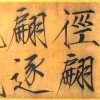 徑翩
翩逐